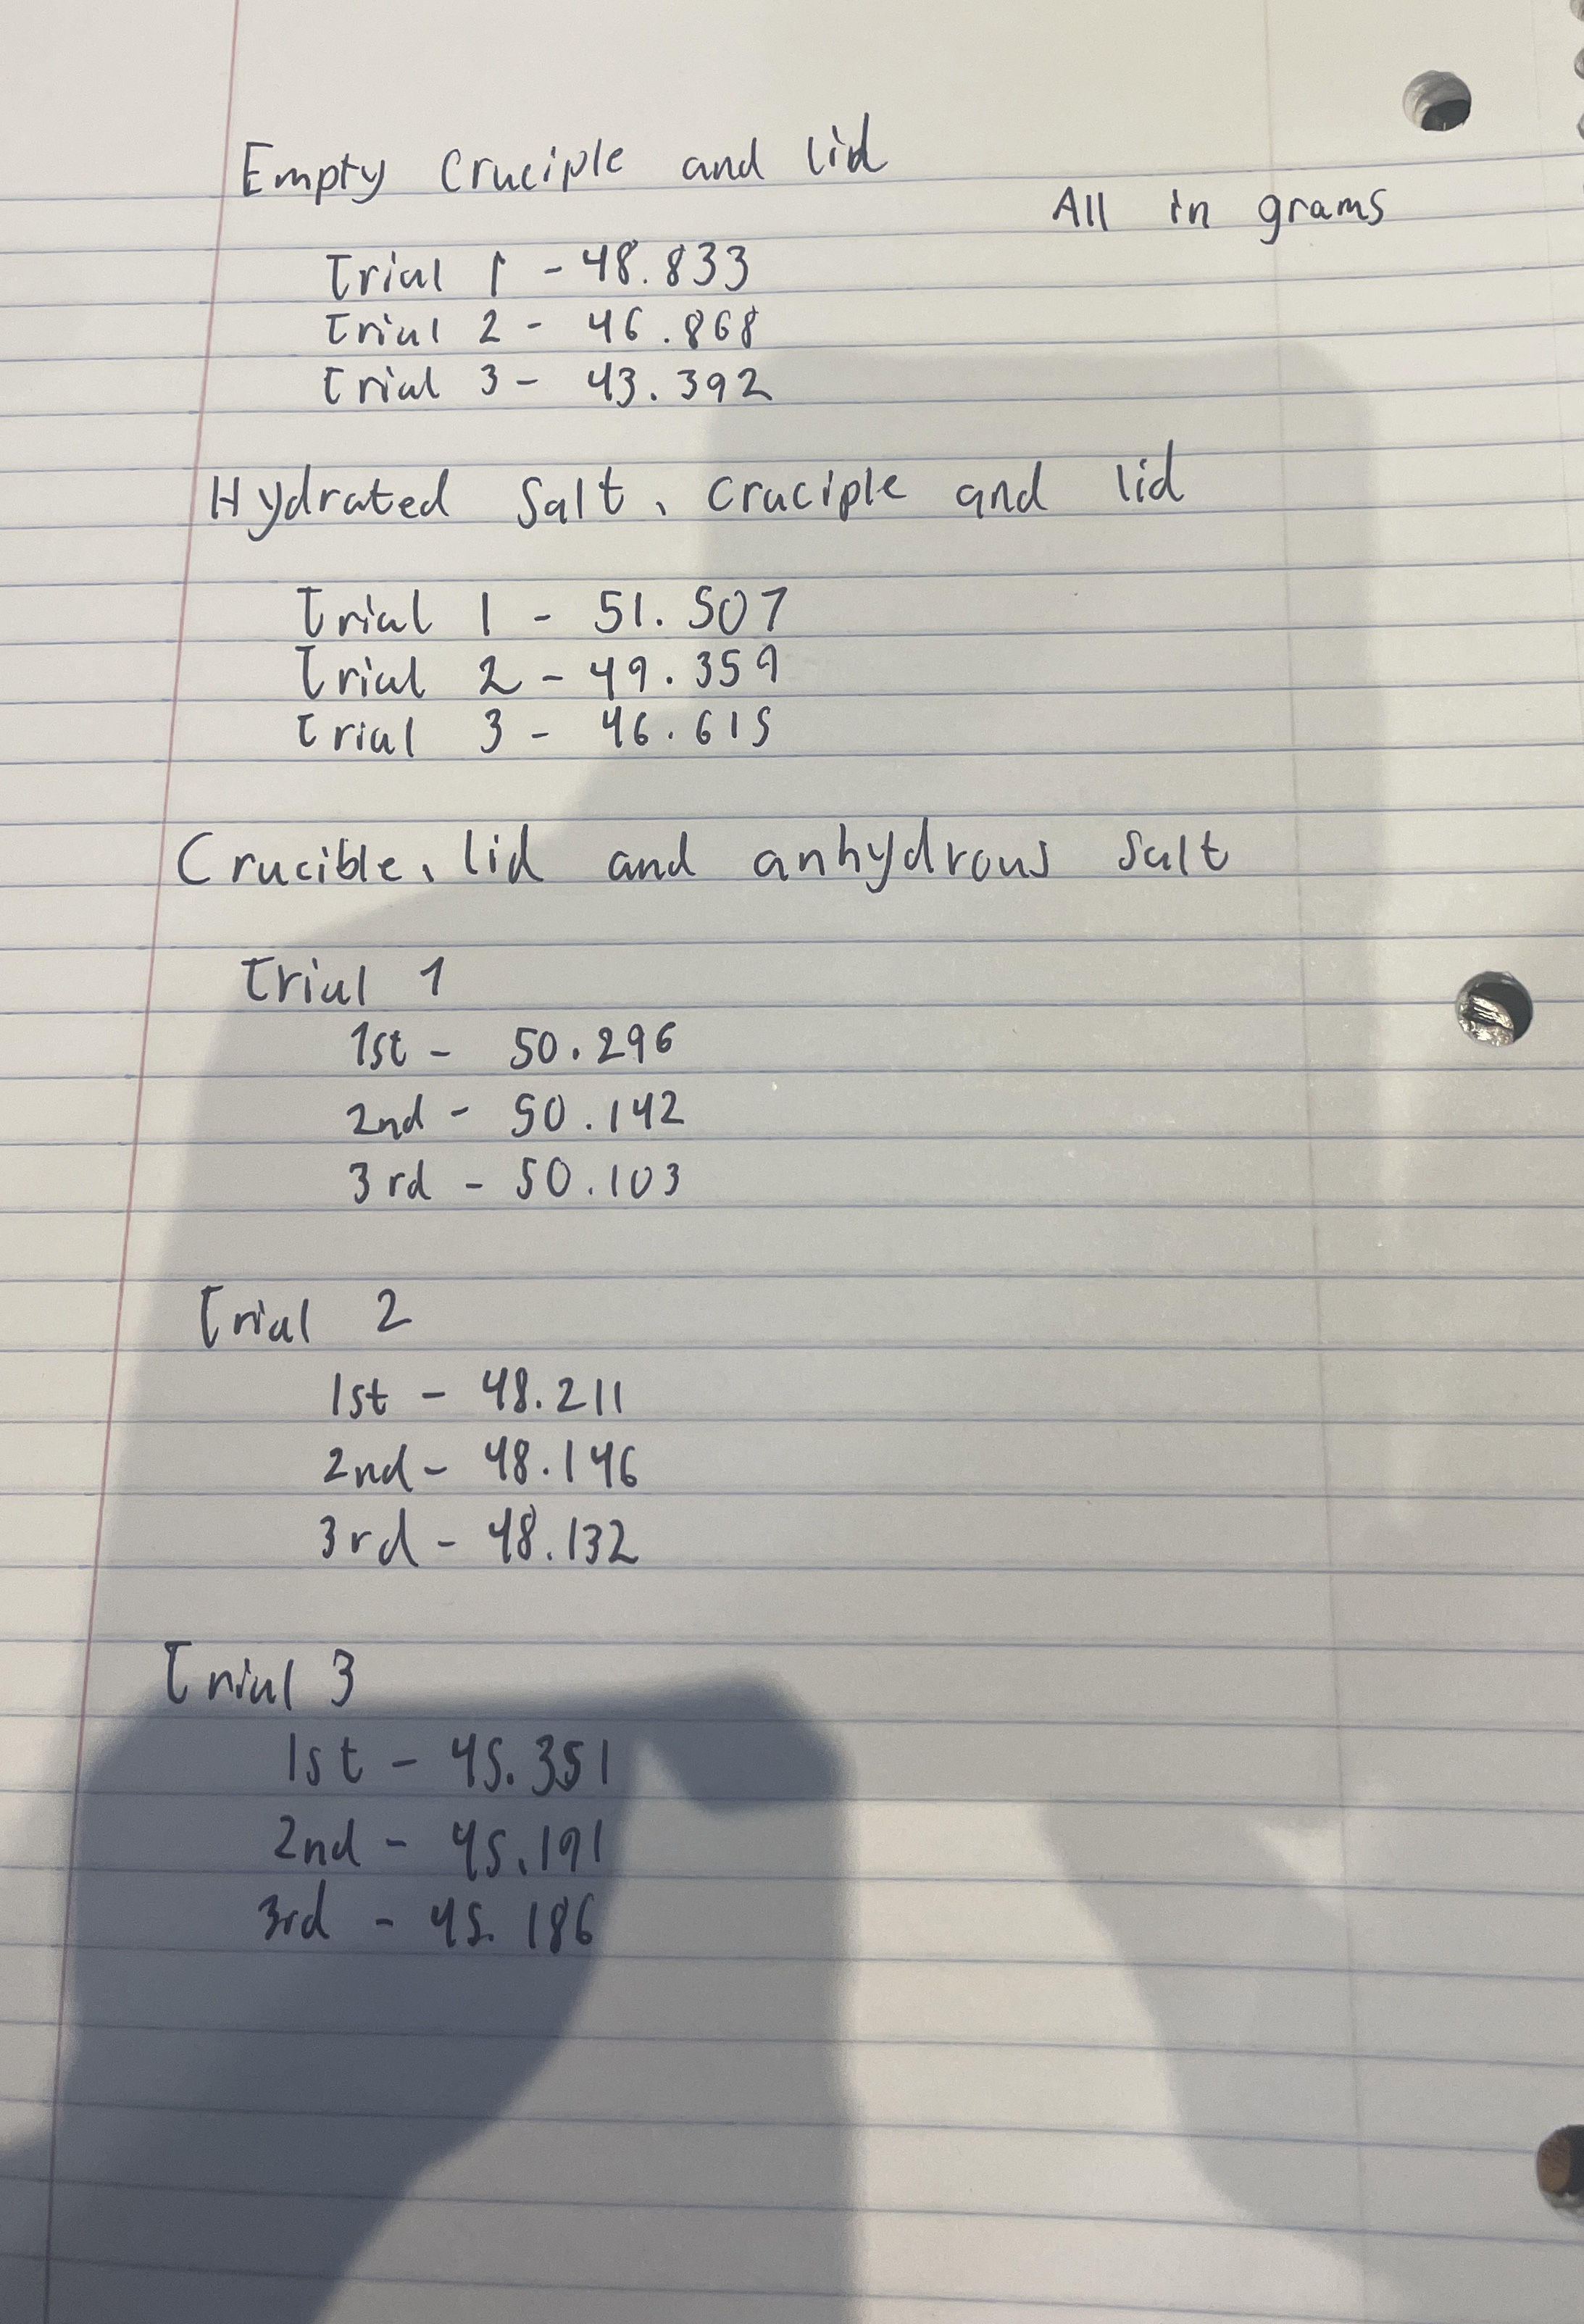 Empty Cruciple and lid
All in grams
Trial 1 - 48.833
Trial 2 - 46.868
Trial 3 - 43.392
Hydrated Salt, Cruciple and lid
Trial 1 - 51.507
Trial 2 - 49.359
Trial 3 - 46.615
Crucible, lid and anhydrous salt
Trial 1
1st - 50.296
2nd - 50.142
3rd - 50.103
Trial 2
1st - 48.211
2nd - 48.146
3rd - 48.132
Trial 3
1st - 45.351
2nd - 45.191
3rd - 45.186